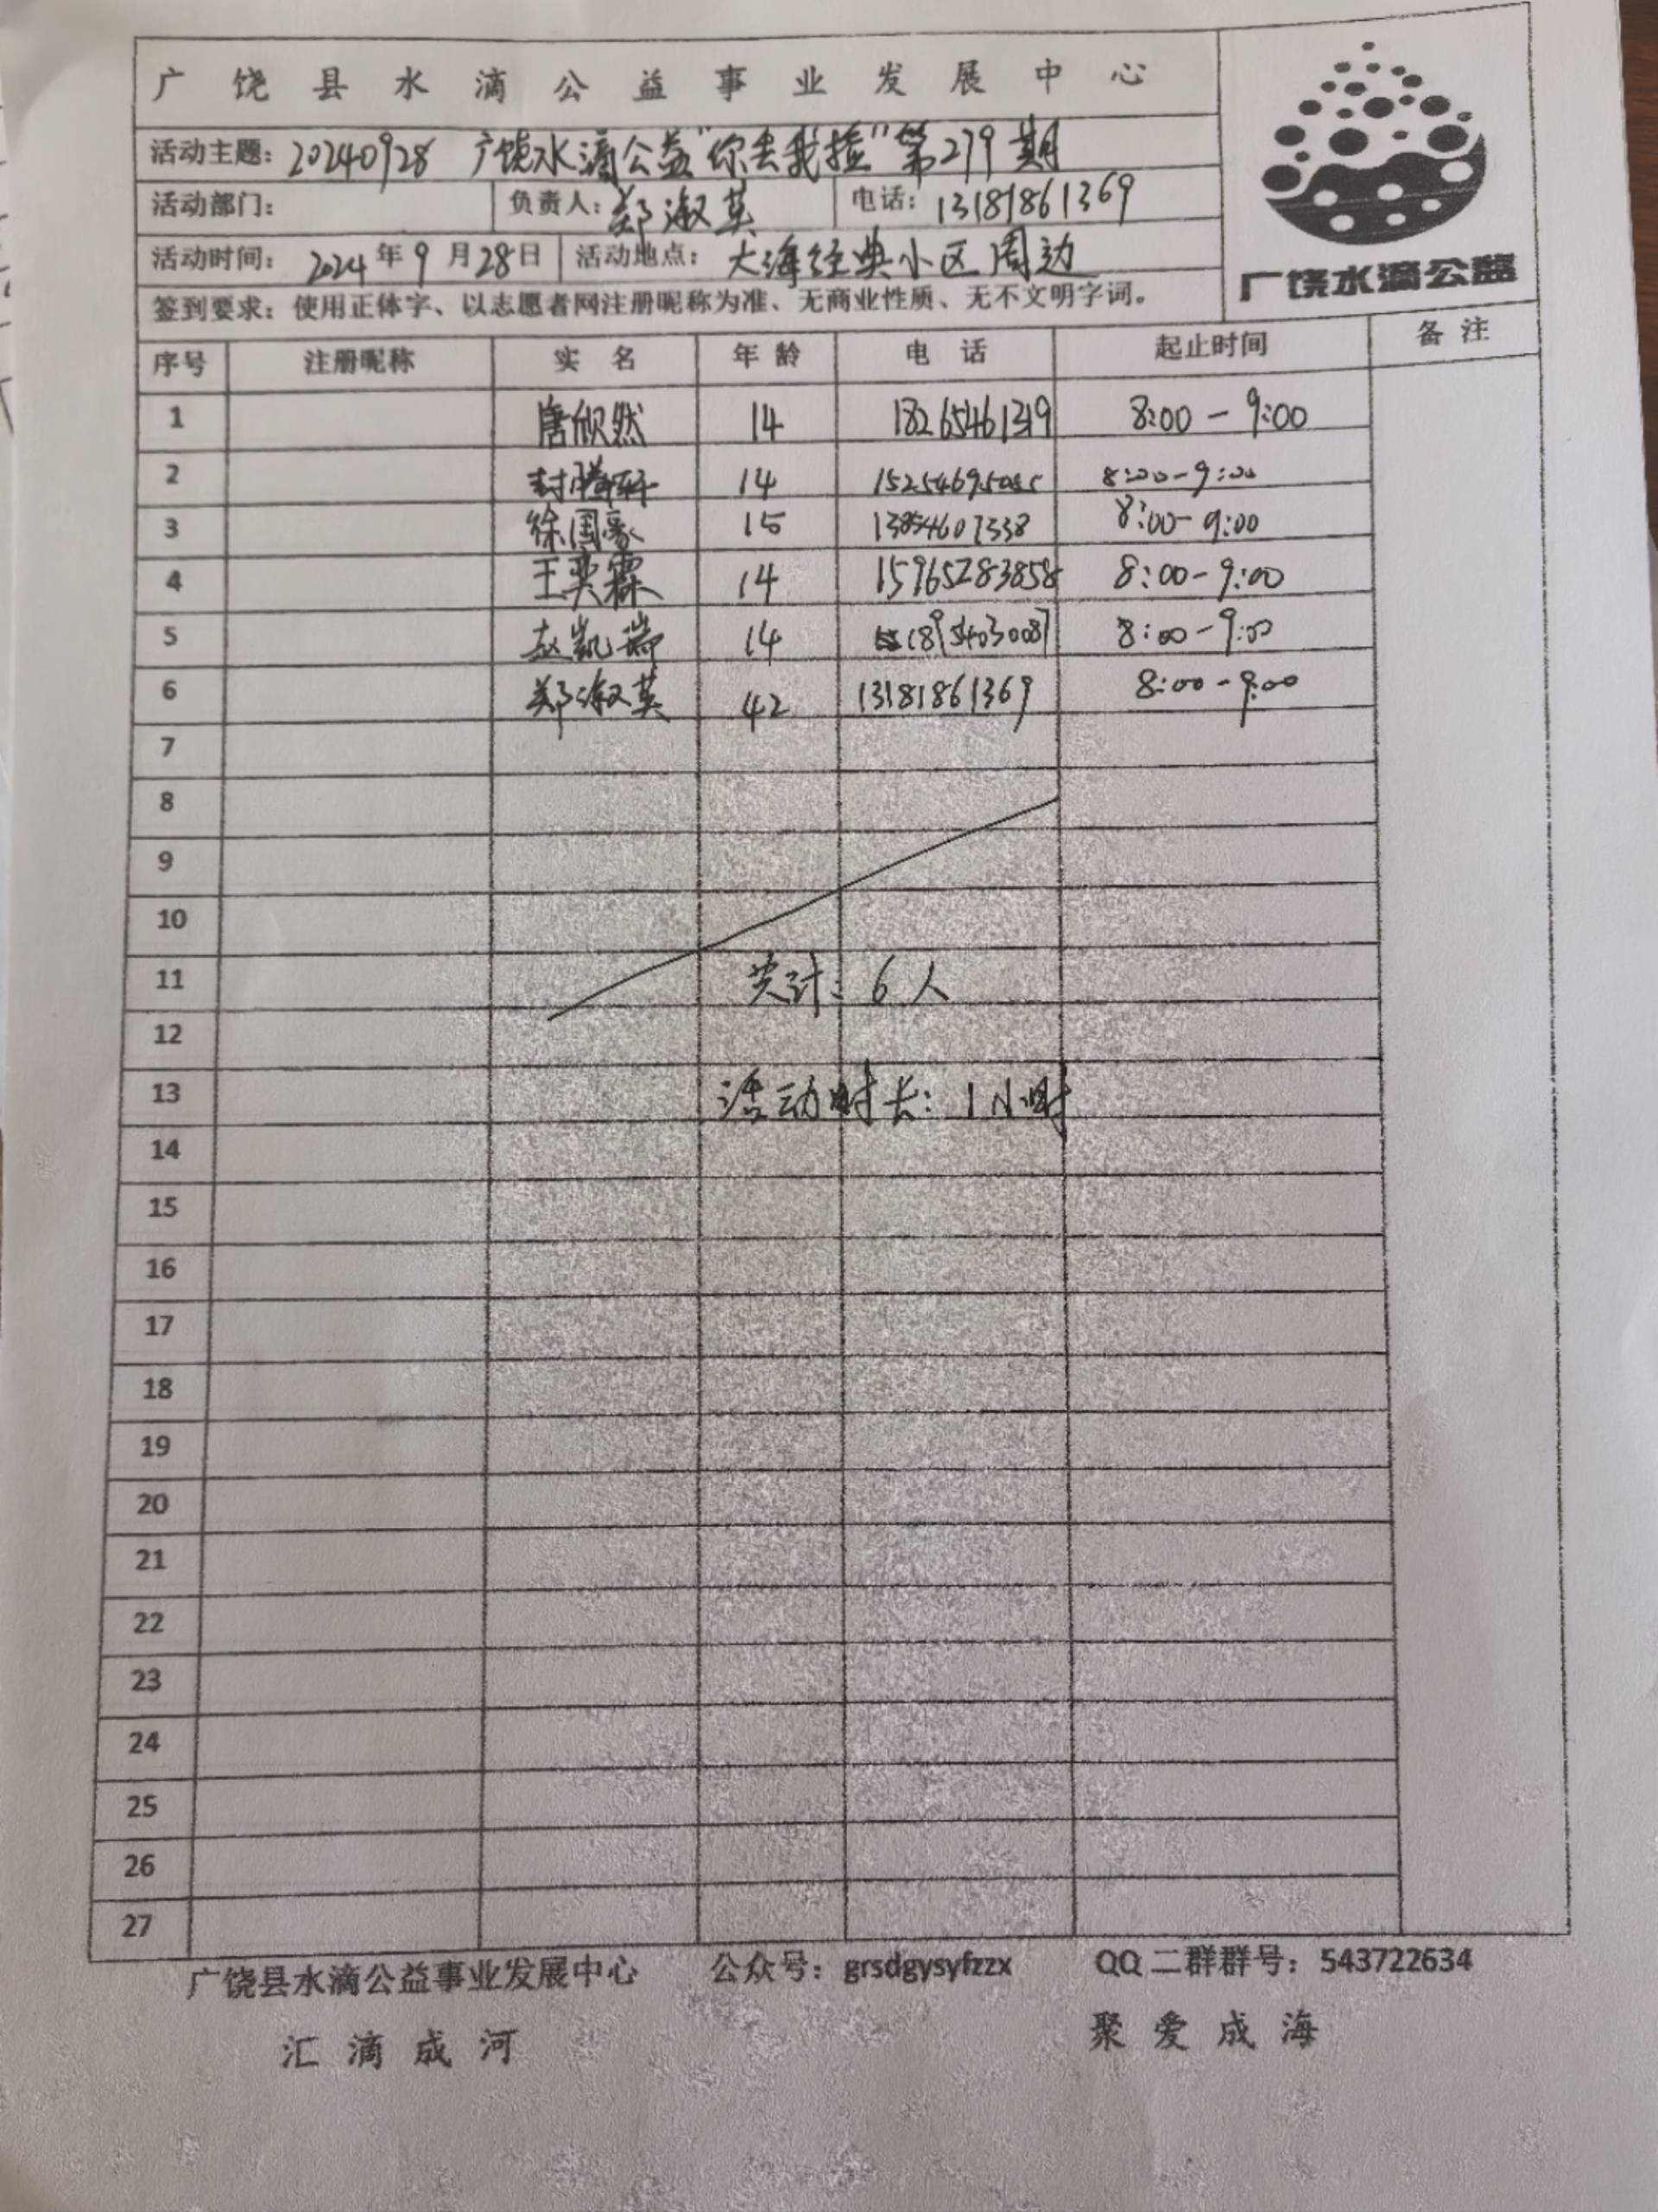 广饶县水滴公益事业发展中心
活动主题：20240928 广饶水滴公益"你丢我捡"第279期
活动部门： 负责人：郑淑英 电话：13181861369
活动时间：2024年9月28日 活动地点：大海经典小区周边
广饶水滴公益
签到要求：使用正体字、以志愿者网注册昵称为准、无商业性质、无不文明字词。
序号 注册昵称 实名 年龄 电话 起止时间 备注
1 唐欣然 14 18265461319 8:00-9:00
2 封腾轩 14 8:00-9:00
3 徐国豪 15 13854607338 8:00-9:00
4 王奕霖 14 15965283858 8:00-9:00
5 赵凯瑞 14 18954030087 8:00-9:00
6 郑淑英 42 13181861369 8:00-9:00
7
8
9
10
11 共计：6人
12
13 活动时长：1小时
14
15
16
17
18
19
20
21
22
23
24
25
26
27
广饶县水滴公益事业发展中心 公众号：grsdgysyfzzx QQ二群群号：543722634
汇滴成河 聚爱成海